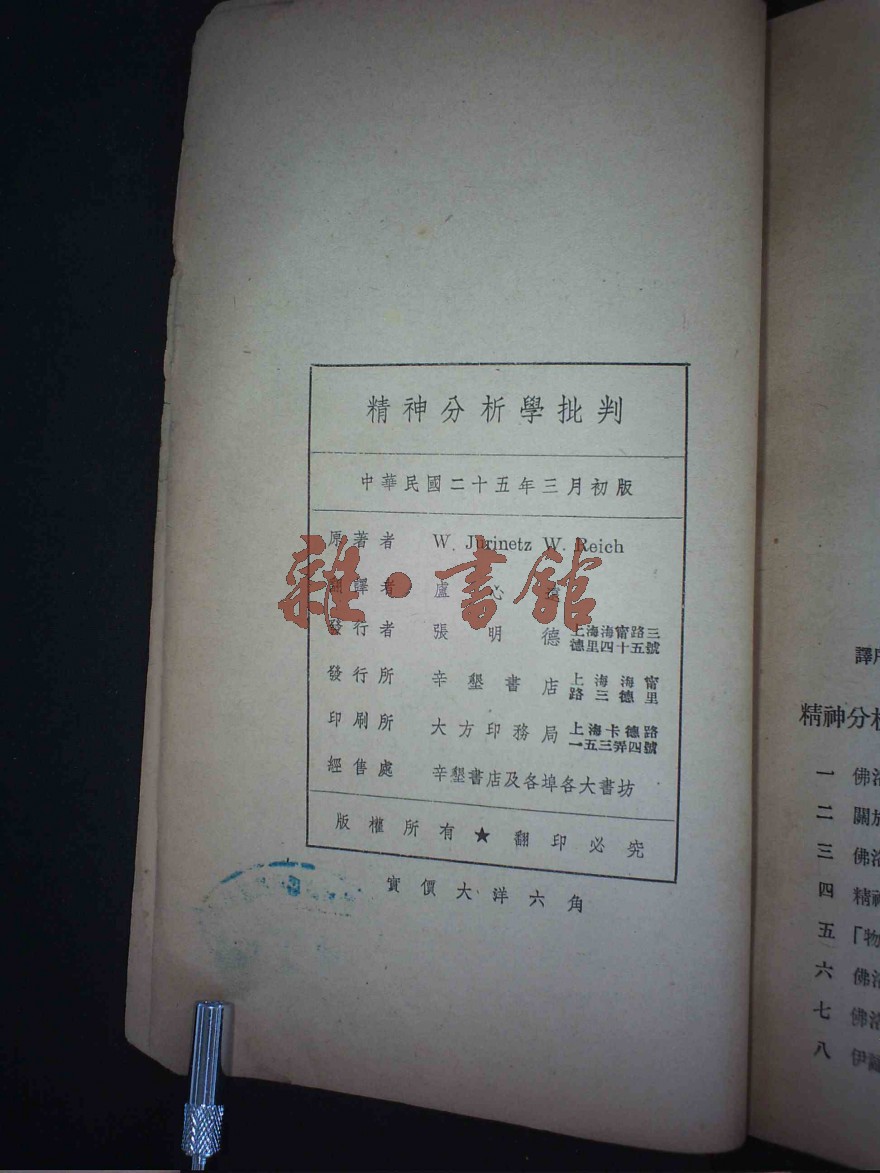 精神分析學批判
中華民國二十五年三月初版
原著者 W. Jurinetz W. Reich
譯者 盧心
發行者 張明德 上海海甯路三德里四十五號
發行所 辛墾書店 上海海甯路三德里
印刷所 大方印務局 上海卡德路一五三弄四號
經售處 辛墾書店及各埠各大書坊
版權所有★翻印必究
實價大洋六角
雜·書館
譯序
精神分析
一 佛洛
二 關於
三 佛洛
四 精神
五 「物
六 佛洛
七 佛洛
八 伊